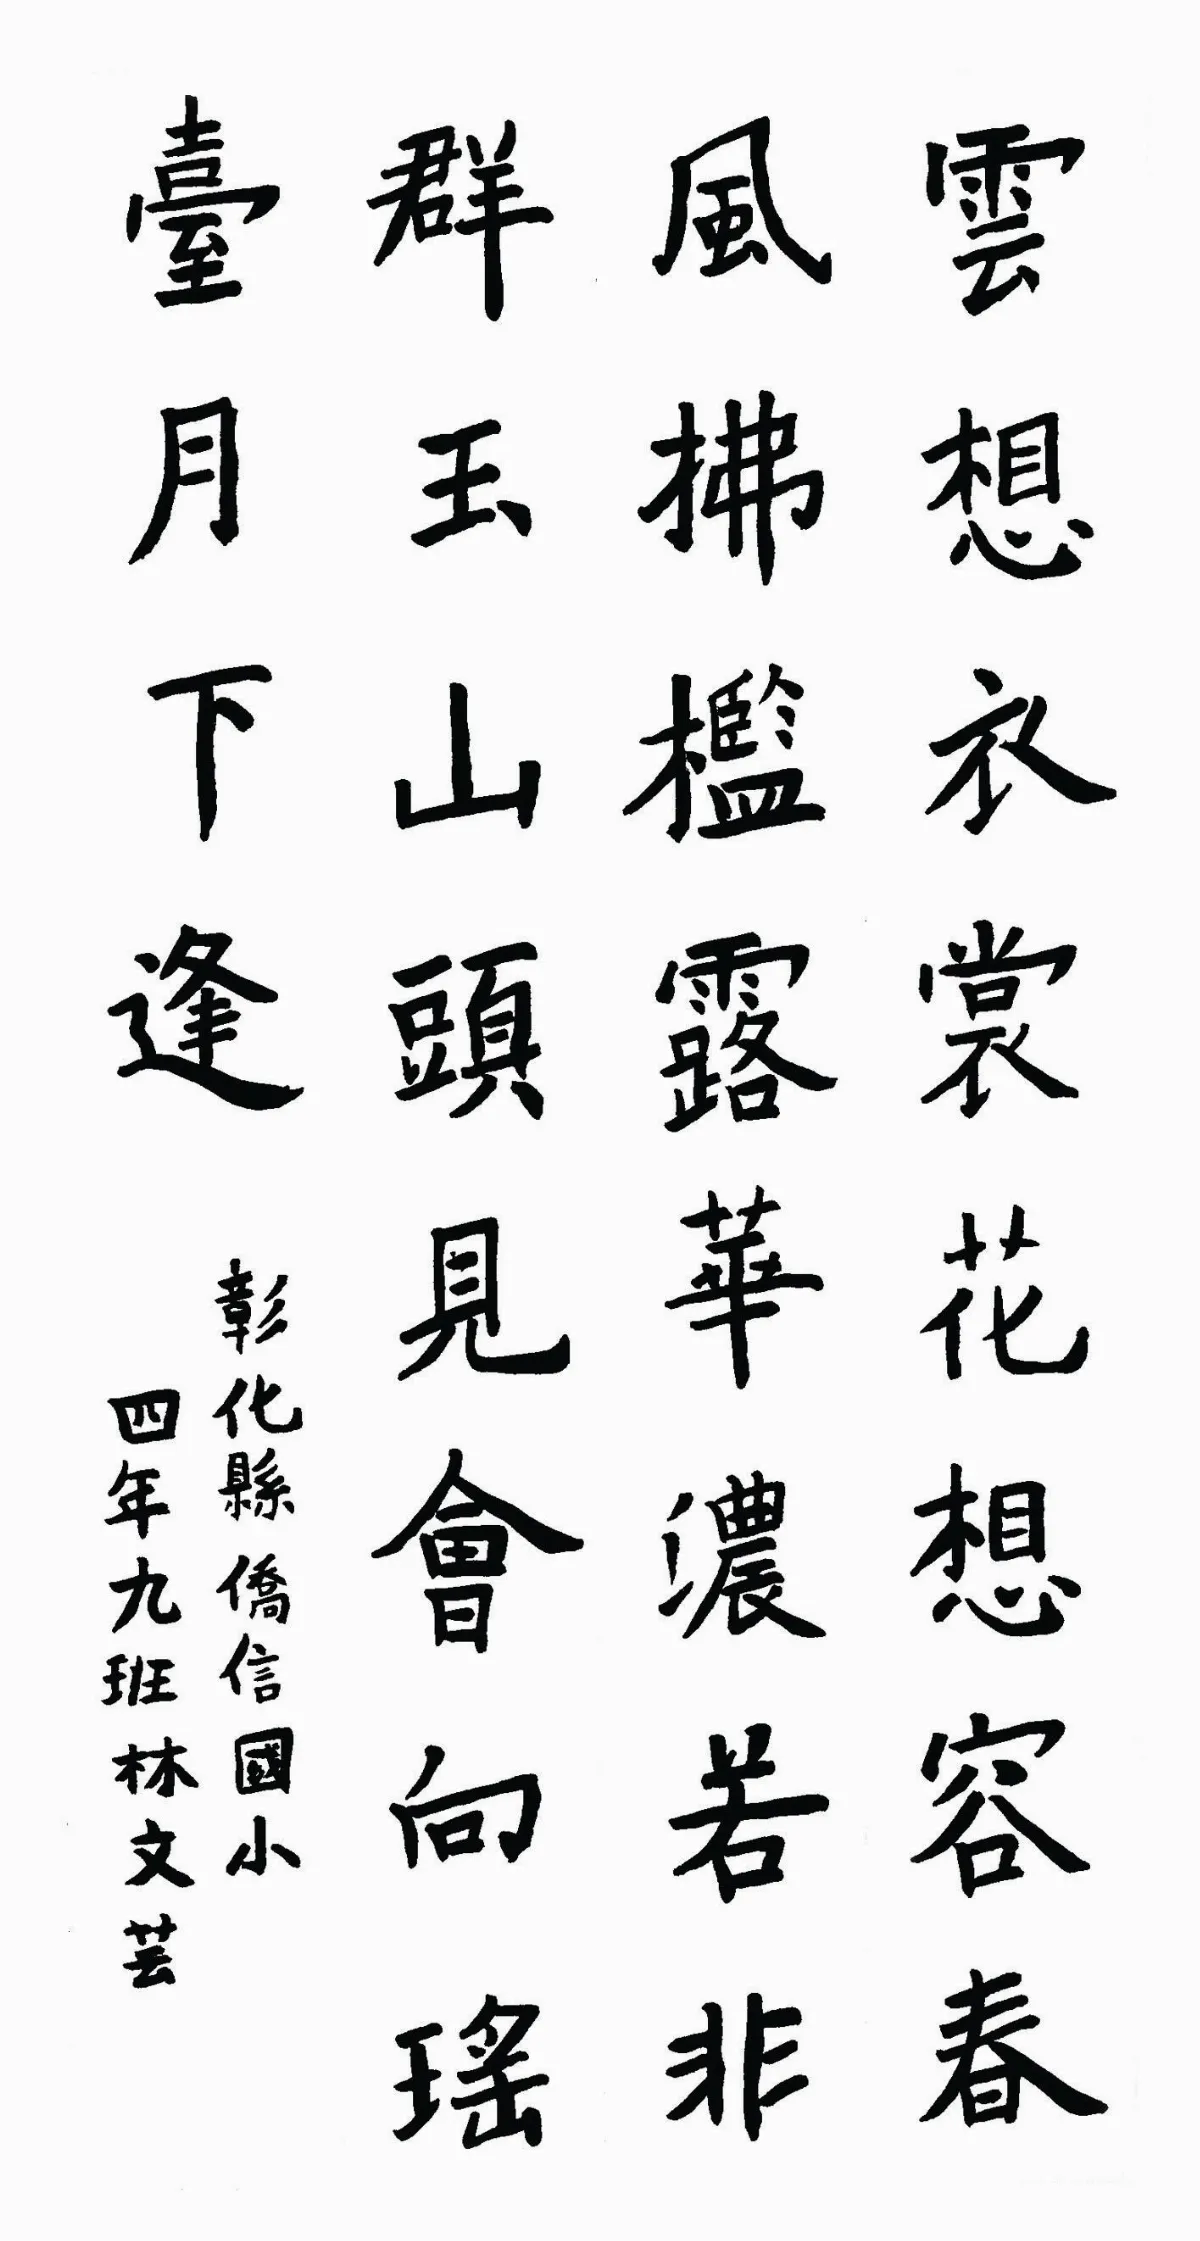 雲想衣裳花想容春
風拂檻露華濃若非
群玉山頭見會向瑤
臺月下逢
彰化縣僑信國小
四年九班林文芸